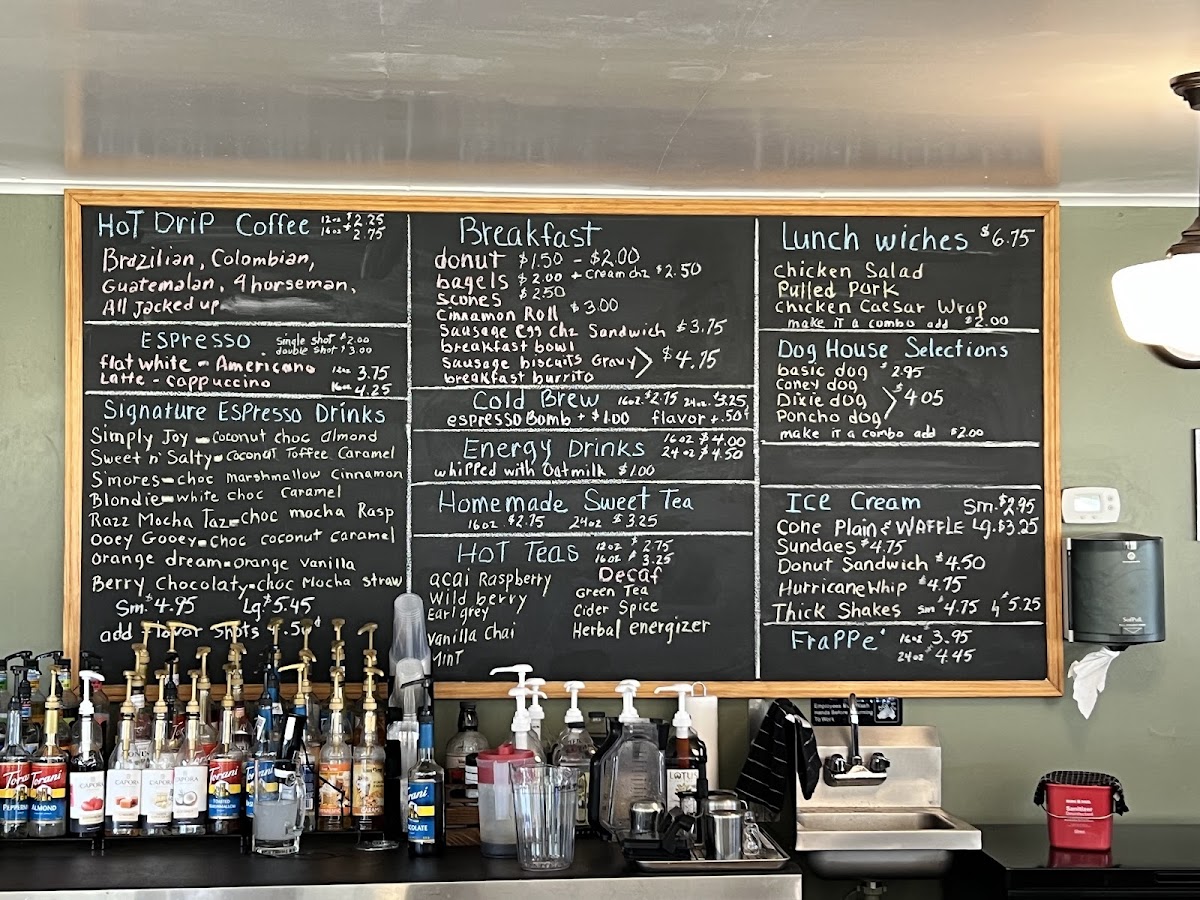 Hot Drip Coffee 12oz $2.25
16oz $2.75
Brazilian, Colombian,
Guatemalan, 4horseman,
All Jacked up
Espresso single shot $2.00
double shot $3.00
flat white - Americano 12oz 3.75
Latte - cappuccino 16oz 4.25
Signature Espresso Drinks
Simply Joy - coconut choc almond
Sweet n' Salty - coconut toffee Caramel
S'mores - choc marshmallow cinnamon
Blondie - white choc caramel
Razz Mocha Taz - choc mocha Rasp
Ooey Gooey - choc coconut caramel
orange dream - orange vanilla
Berry Chocolaty - choc Mocha straw
Sm. $4.95 Lg $5.45
add flavor shots .50¢
Breakfast
donut $1.50 - $2.00
bagels $2.00 + cream chz $2.50
scones $2.50
Cinnamon Roll $3.00
Sausage egg chz Sandwich $3.75
breakfast bowl
Sausage biscuits Gravy $4.75
breakfast burrito
Cold Brew 16oz $2.75 24oz $3.25
espresso Bomb + $1.00 flavor +.50¢
Energy Drinks 16oz $4.00
24oz $4.50
whipped with Oatmilk $1.00
Homemade Sweet Tea
16oz $2.75 24oz $3.25
Hot Teas 12oz $2.75
16oz $3.25
acai Raspberry
Wild berry
Earl grey
Vanilla Chai
Mint
Decaf
Green Tea
Cider Spice
Herbal energizer
Lunch wiches $6.75
Chicken Salad
Pulled Pork
Chicken Caesar Wrap
make it a combo add $2.00
Dog House Selections
basic dog $2.95
Coney dog
Dixie dog $4.05
Poncho dog
make it a combo add $2.00
Ice Cream Sm. $2.95
Cone Plain & WAFFLE Lg. $3.25
Sundaes $4.75
Donut Sandwich $4.50
Hurricane Whip $4.75
Thick Shakes sm $4.75 lg $5.25
Frappe' 16oz $3.95
24oz $4.45
Employees Must Wash
Hands Before Returning
To Work
Torani
Torani
ALMOND
CAPORA
CAPORA
CAPORA
Torani
Torani
CHOCOLATE
LOTUS
Sanitizer